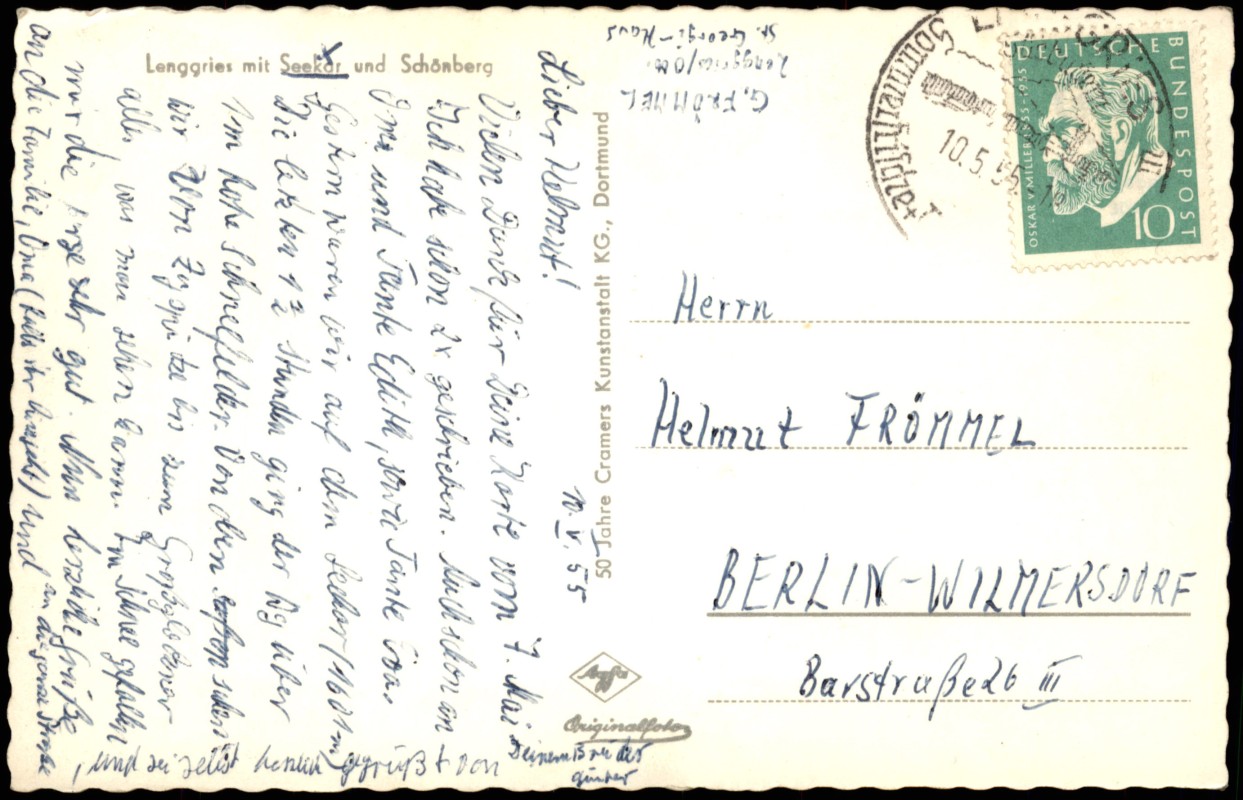 Lenggries mit Seekar und Schönberg
G. FRÖMMEL
Lenggries/Obb.
St. Georgi-Haus
10. V. 55
Lieber Helmut!
Vielen Dank für Deine Karte vom 7. Mai
Ich habe schon 2x geschrieben. Auch schon an
Oma und Tante Edith, sowie Tante Eva.
Gestern waren wir auf dem Seekar/1601m
Die letzten 1½ Stunden ging der Weg über
1m hohe Schneefelder. Von oben sahen
wir von Zugspitze bis zum Großglockner
alles was man sehen kann. Im Schnee gefallen
mir die sehr gut. Nun herzliche Grüße
an die Familie, Oma (falls ihr hinseht) und an die ganze Straße
, und sei selbst herzlich gegrüßt von Deinem Bruder
Günter
50 Jahre Cramers Kunstanstalt KG., Dortmund
Agfa
Originalfoto
LENGGRIES
Sommerfrische
10.5.55
DEUTSCHE BUNDESPOST
OSKAR V. MILLER 1855-1955
10
Herrn
Helmut FRÖMMEL
BERLIN-WILMERSDORF
Barstraße 26 III